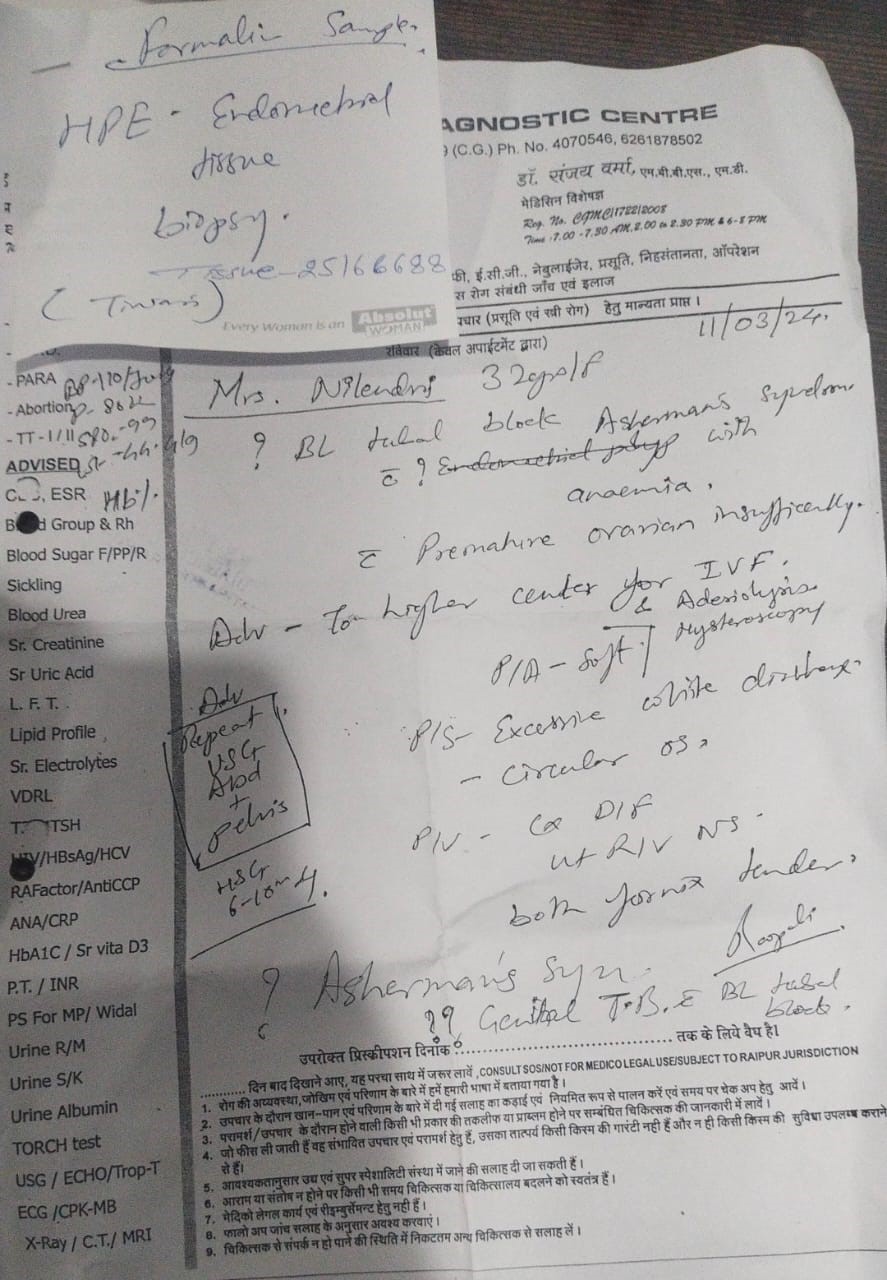 Formalin Sample
HPE - Endometrial
tissue
biopsy.
Tissue-25166688
Every Woman is an Absolut WOMAN
AGNOSTIC CENTRE
(C.G.) Ph. No. 4070546, 6261878502
डॉ. संजय वर्मा, एम.बी.बी.एस., एम.डी.
मेडिसिन विशेषज्ञ
Reg. No. CGMC/1722/2008
Time : 7.00 -7.30 AM, 2.00 to 2.30 PM & 6-8 PM
फी, ई.सी.जी., नेबुलाईजेर, प्रसूति, निहसंतानता, ऑपरेशन
स रोग संबंधी जाँच एवं इलाज
पचार (प्रसूति एवं स्त्री रोग) हेतु मान्यता प्राप्त ।
रविवार (केवल अपाईटमेंट द्वारा)
11/03/24.
Mrs. Nilendri 32
? BL tubal block Asherman's Syndrom
c̄ ? Endometrial polyp with
anaemia.
c̄ Premature ovarian insufficiently.
Adv - To higher center for IVF.
& Adesiolysis
Hysteroscopy
P/A - Soft
P/S- Excessive white discharge.
- Circular os
P/V - Cx D/F
ut R/V NS.
both fornix tender.
Adv
Repeat
USG
Abd
+
Pelvis
HSG
? Asherman's Syn.
?? Genital T.B. c̄ BL tubal
block.
- PARA
- Abortion
- TT-1/11
ADVISED
ESR Hb%
Group & Rh
Blood Sugar F/PP/R
Sickling
Blood Urea
Sr. Creatinine
Sr Uric Acid
L. F. T.
Lipid Profile
Sr. Electrolytes
VDRL
TSH
/HBsAg/HCV
RAFactor/AntiCCP
ANA/CRP
HbA1C / Sr vita D3
P.T. / INR
PS For MP/ Widal
Urine R/M
Urine S/K
Urine Albumin
TORCH test
USG / ECHO/Trop-T
ECG /CPK-MB
X-Ray / C.T./ MRI
उपरोक्त प्रिस्कीपशन दिनाँक ........ तक के लिये वैघ है।
............ दिन बाद दिखाने आए, यह परचा साथ में जरूर लावें ,CONSULT SOS/NOT FOR MEDICO LEGAL USE/SUBJECT TO RAIPUR JURISDICTION
1. रोग की अव्यवस्था,जोखिम एवं परिणाम के बारे में हमें हमारी भाषा में बताया गया है।
2. उपचार के दौरान खान-पान एवं परिणाम के बारे में दी गई सलाह का कड़ाई एवं नियमित रूप से पालन करें एवं समय पर चेक अप हेतु आवें।
3. परामर्श/उपचार के दौरान होने वाली किसी भी प्रकार की तकलीफ या प्राब्लम होने पर सम्बंधित चिकित्सक की जानकारी में लावें।
4. जो फीस ली जाती हैं वह संभावित उपचार एवं परामर्श हेतु हैं, उसका तात्पर्य किसी किस्म की गारंटी नही हैं और न ही किसी किस्म की सुविधा उपलब्ध कराने
से हैं।
5. आवश्यकतानुसार उच्च एवं सुपर स्पेशालिटी संस्था में जाने की सलाह दी जा सकती हैं।
6. आराम या संतोष न होने पर किसी भी समय चिकित्सक या चिकित्सालय बदलने को स्वतंत्र हैं।
7. मेडिको लेगल कार्य एवं रीइम्बुर्समेन्ट हेतु नही हैं।
8. फालो अप जांच सलाह के अनुसार अवश्य करवाएं।
9. चिकित्सक से संपर्क न हो पाने की स्थिति में निकटतम अन्य चिकित्सक से सलाह लें।